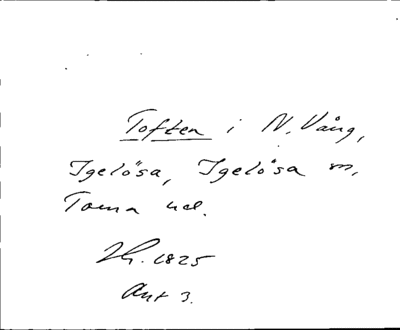 Toften i N. Vång,
Igelösa, Igelösa m,
Torna hd.
Zh. 1825
Ant 3.